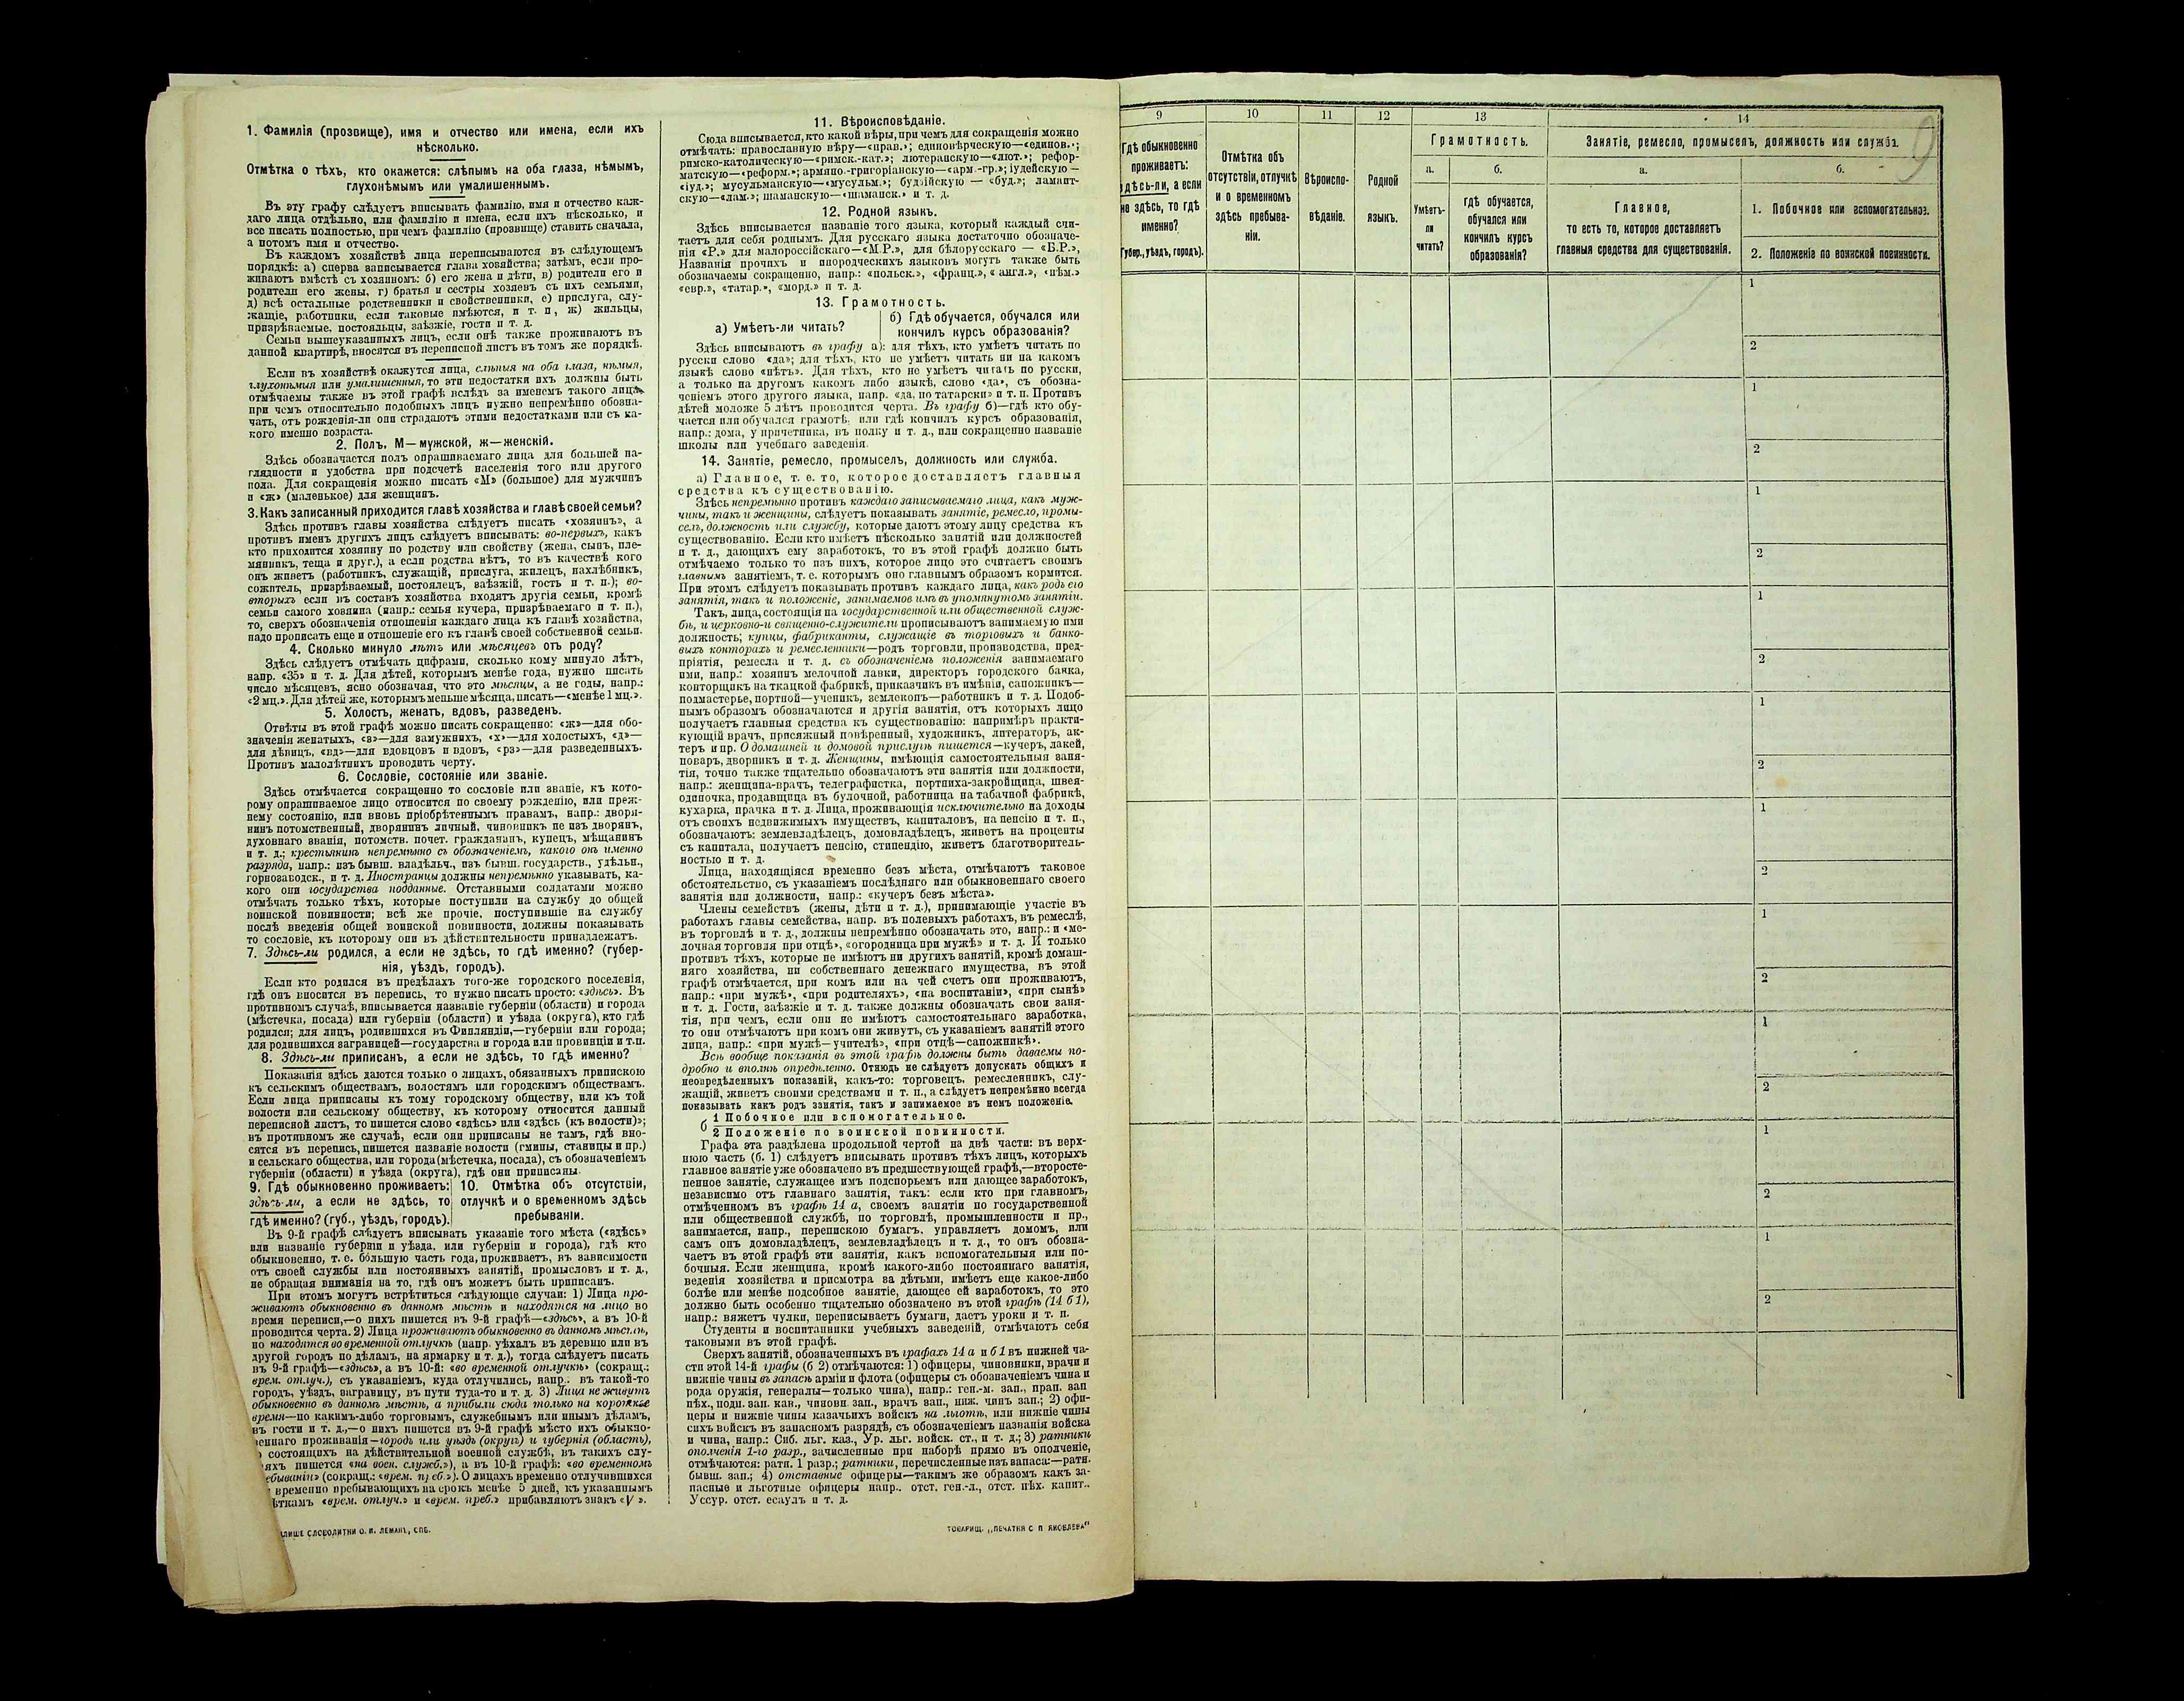 1. Фамилія (прозвище), имя и отчество или имена, если ихъ
нѣсколько.
Отмѣтка о тѣхъ, кто окажется: слѣпымъ на оба глаза, нѣмымъ,
глухонѣмымъ или умалишеннымъ.
Въ эту графу слѣдуетъ вписывать фамилію, имя и отчество каж-
даго лица отдѣльно, или фамилію и имена, если ихъ нѣсколько, и
все писать полностью, при чемъ фамилію (прозвище) ставить сначала,
а потомъ имя и отчество.
Въ каждомъ хозяйствѣ лица переписываются въ слѣдующемъ
порядкѣ: а) сперва записывается глава хозяйства; затѣмъ, если про-
живаютъ вмѣстѣ съ хозяиномъ: б) его жена и дѣти, в) родители его и
родители его жены, г) братья и сестры хозяевъ съ ихъ семьями,
д) всѣ остальные родственники и свойственники, е) прислуга, слу-
жащіе, работники, если таковые имѣются, и т. п, ж) жильцы,
призрѣваемые, постояльцы, заѣзжіе, гости и т. д.
Семьи вышеуказанныхъ лицъ, если онѣ также проживаютъ въ
данной квартирѣ, вносятся въ переписной листъ въ томъ же порядкѣ.
Если въ хозяйствѣ окажутся лица, слѣпыя на оба глаза, нѣмыя,
глухонѣмыя или умалишенныя, то эти недостатки ихъ должны быть
отмѣчаемы также въ этой графѣ вслѣдъ за именемъ такого лица,
при чемъ относительно подобныхъ лицъ нужно непремѣнно обозна-
чать, отъ рожденія-ли они страдаютъ этими недостатками или съ ка-
кого именно возраста.
2. Полъ, М—мужской, ж—женскій.
Здѣсь обозначается полъ опрашиваемаго лица для большей на-
глядности и удобства при подсчетѣ населенія того или другого
пола. Для сокращенія можно писать «М» (большое) для мужчинъ
и «ж» (маленькое) для женщинъ.
3. Какъ записанный приходится главѣ хозяйства и главѣ своей семьи?
Здѣсь противъ главы хозяйства слѣдуетъ писать «хозяинъ», а
противъ именъ другихъ лицъ слѣдуетъ вписывать: во-первыхъ, какъ
кто приходится хозяину по родству или свойству (жена, сынъ, пле-
мянникъ, теща и друг.), а если родства нѣтъ, то въ качествѣ кого
онъ живетъ (работникъ, служащій, прислуга, жилецъ, нахлѣбникъ,
сожитель, призрѣваемый, постоялецъ, заѣзжій, гость и т. п.); во-
вторыхъ если въ составъ хозяйства входятъ другія семьи, кромѣ
семьи самого хозяина (напр.: семья кучера, призрѣваемаго и т. п.),
то, сверхъ обозначенія отношенія каждаго лица къ главѣ хозяйства,
надо прописать еще и отношеніе его къ главѣ своей собственной семьи.
4. Сколько минуло лѣтъ или мѣсяцевъ отъ роду?
Здѣсь слѣдуетъ отмѣчать цифрами, сколько кому минуло лѣтъ,
напр. «35» и т. д. Для дѣтей, которымъ менѣе года, нужно писать
число мѣсяцевъ, ясно обозначая, что это мѣсяцы, а не годы, напр.:
«2 мц.». Для дѣтей же, которымъ меньше мѣсяца, писать—«менѣе 1 мц.».
5. Холостъ, женатъ, вдовъ, разведенъ.
Отвѣты въ этой графѣ можно писать сокращенно: «ж»—для обо-
значенія женатыхъ, «з»—для замужнихъ, «х»—для холостыхъ, «д»—
для дѣвицъ, «вд»—для вдовцовъ и вдовъ, «рз»—для разведенныхъ.
Противъ малолѣтнихъ проводить черту.
6. Сословіе, состояніе или званіе.
Здѣсь отмѣчается сокращенно то сословіе или званіе, къ кото-
рому опрашиваемое лицо относится по своему рожденію, или преж-
нему состоянію, или вновь пріобрѣтеннымъ правамъ, напр.: дворя-
нинъ потомственный, дворянинъ личный, чиновникъ не изъ дворянъ,
духовнаго званія, потомств. почет. гражданинъ, купецъ, мѣщанинъ
и т. д.; крестьянинъ непремѣнно съ обозначеніемъ, какого онъ именно
разряда, напр.: изъ бывш. владѣльч., изъ бывш. государств., удѣльн.,
горнозаводск., и т. д. Иностранцы должны непремѣнно указывать, ка-
кого они государства подданные. Отставными солдатами можно
отмѣчать только тѣхъ, которые поступили на службу до общей
воинской повинности; всѣ же прочіе, поступившіе на службу
послѣ введенія общей воинской повинности, должны показывать
то сословіе, къ которому они въ дѣйствительности принадлежатъ.
7. Здѣсь-ли родился, а если не здѣсь, то гдѣ именно? (губер-
нія, уѣздъ, городъ).
Если кто родился въ предѣлахъ того-же городского поселенія,
гдѣ онъ вносится въ перепись, то нужно писать просто: «здѣсь». Въ
противномъ случаѣ, вписывается названіе губерніи (области) и города
(мѣстечка, посада) или губерніи (области) и уѣзда (округа), кто гдѣ
родился; для лицъ, родившихся въ Финляндіи,—губерніи или города;
для родившихся заграницей—государства и города или провинціи и т.п.
8. Здѣсь-ли приписанъ, а если не здѣсь, то гдѣ именно?
Показанія здѣсь даются только о лицахъ, обязанныхъ припискою
къ сельскимъ обществамъ, волостямъ или городскимъ обществамъ.
Если лица приписаны къ тому городскому обществу, или къ той
волости или сельскому обществу, къ которому относится данный
переписной листъ, то пишется слово «здѣсь» или «здѣсь (къ волости)»;
въ противномъ же случаѣ, если они приписаны не тамъ, гдѣ вно-
сятся въ перепись, пишется названіе волости (гмины, станицы и пр.)
и сельскаго общества, или города (мѣстечка, посада), съ обозначеніемъ
губерніи (области) и уѣзда (округа), гдѣ они приписаны.
9. Гдѣ обыкновенно проживаетъ:
здѣсь-ли, а если не здѣсь, то
гдѣ именно? (губ., уѣздъ, городъ).
10. Отмѣтка объ отсутствіи,
отлучкѣ и о временномъ здѣсь
пребываніи.
Въ 9-й графѣ слѣдуетъ вписывать указаніе того мѣста («здѣсь»
или названіе губерніи и уѣзда, или губерніи и города), гдѣ кто
обыкновенно, т. е. бо́льшую часть года, проживаетъ, въ зависимости
отъ своей службы или постоянныхъ занятій, промысловъ и т. д.,
не обращая вниманія на то, гдѣ онъ можетъ быть приписанъ.
При этомъ могутъ встрѣтиться слѣдующіе случаи: 1) Лица про-
живаютъ обыкновенно въ данномъ мѣстѣ и находятся на лицо во
время переписи,—о нихъ пишется въ 9-й графѣ—«здѣсь», а въ 10-й
проводится черта. 2) Лица проживаютъ обыкновенно въ данномъ мѣстѣ,
но находятся во временной отлучкѣ (напр. уѣхалъ въ деревню или въ
другой городъ по дѣламъ, на ярмарку и т. д.), тогда слѣдуетъ писать
въ 9-й графѣ—«здѣсь», а въ 10-й: «во временной отлучкѣ» (сокращ.:
врем. отлуч.), съ указаніемъ, куда отлучились, напр.: въ такой-то
городъ, уѣздъ, заграницу, въ пути туда-то и т. д. 3) Лица не живутъ
обыкновенно въ данномъ мѣстѣ, а прибыли сюда только на короткое
время—по какимъ-либо торговымъ, служебнымъ или инымъ дѣламъ,
въ гости и т. д.,—о нихъ пишется въ 9-й графѣ мѣсто ихъ обыкно-
веннаго проживанія—городъ или уѣздъ (округъ) и губернія (область),
состоящихъ на дѣйствительной военной службѣ, въ такихъ слу-
яхъ пишется «на воен. служб.»), а въ 10-й графѣ: «во временномъ
ебываніи» (сокращ.: «врем. преб.»). О лицахъ временно отлучившихся
временно пребывающихъ на срокъ менѣе 5 дней, къ указаннымъ
ѣткамъ «врем. отлуч.» и «врем. преб.» прибавляютъ знакъ «V».
СЛОВОЛИТНИ О. И. ЛЕМАНЪ, СПБ.
11. Вѣроисповѣданіе.
Сюда вписывается, кто какой вѣры, при чемъ для сокращенія можно
отмѣчать: православную вѣру—«прав.»; единовѣрческую—«единов.»;
римско-католическую—«римск.-кат.»; лютеранскую—«лют.»; рефор-
матскую—«реформ.»; армяно.-григоріанскую—«арм.-гр.»; іудейскую —
«іуд.»; мусульманскую—«мусульм.»; буддійскую — «буд.»; ламаит-
скую—«лам.»; шаманскую—«шаманск.» и т. д.
12. Родной языкъ.
Здѣсь вписывается названіе того языка, который каждый счи-
таетъ для себя роднымъ. Для русскаго языка достаточно обозначе-
нія «Р.» для малороссійскаго—«М.Р.», для бѣлорусскаго — «Б.Р.»,
Названія прочихъ и инородческихъ языковъ могутъ также быть
обозначаемы сокращенно, напр.: «польск.», «франц.», «англ.», «нѣм.»
«евр.», «татар.», «морд.» и т. д.
13. Грамотность.
а) Умѣетъ-ли читать?
б) Гдѣ обучается, обучался или
кончилъ курсъ образованія?
Здѣсь вписываютъ въ графу а): для тѣхъ, кто умѣетъ читать по
русски слово «да»; для тѣхъ, кто не умѣетъ читать ни на какомъ
языкѣ слово «нѣтъ». Для тѣхъ, кто не умѣетъ читать по русски,
а только на другомъ какомъ либо языкѣ, слово «да», съ обозна-
ченіемъ этого другого языка, напр. «да, по татарски» и т. п. Противъ
дѣтей моложе 5 лѣтъ проводится черта. Въ графу б)—гдѣ кто обу-
чается или обучался грамотѣ, или гдѣ кончилъ курсъ образованія,
напр.: дома, у причетника, въ полку и т. д., или сокращенно названіе
школы или учебнаго заведенія.
14. Занятіе, ремесло, промыселъ, должность или служба.
а) Главное, т. е. то, которое доставляетъ главныя
средства къ существованію.
Здѣсь непремѣнно противъ каждаго записываемаго лица, какъ муж-
чины, такъ и женщины, слѣдуетъ показывать занятіе, ремесло, промы-
селъ, должность или службу, которые даютъ этому лицу средства къ
существованію. Если кто имѣетъ нѣсколько занятій или должностей
и т. д., дающихъ ему заработокъ, то въ этой графѣ должно быть
отмѣчаемо только то изъ нихъ, которое лицо это считаетъ своимъ
главнымъ занятіемъ, т. е. которымъ оно главнымъ образомъ кормится.
При этомъ слѣдуетъ показывать противъ каждаго лица, какъ родъ его
занятія, такъ и положеніе, занимаемое имъ въ упомянутомъ занятіи.
Такъ, лица, состоящія на государственной или общественной служ-
бѣ, и церковно-и священно-служители прописываютъ занимаемую ими
должность; купцы, фабриканты, служащіе въ торговыхъ и банко-
выхъ конторахъ и ремесленники—родъ торговли, производства, пред-
пріятія, ремесла и т. д. съ обозначеніемъ положенія занимаемаго
ими, напр.: хозяинъ мелочной лавки, директоръ городского банка,
конторщикъ на ткацкой фабрикѣ, приказчикъ въ имѣніи, сапожникъ—
подмастерье, портной—ученикъ, землекопъ—работникъ и т. д. Подоб-
нымъ образомъ обозначаются и другія занятія, отъ которыхъ лицо
получаетъ главныя средства къ существованію: напримѣръ практи-
кующій врачъ, присяжный повѣренный, художникъ, литераторъ, ак-
теръ и пр. О домашней и домовой прислугѣ пишется—кучеръ, лакей,
поваръ, дворникъ и т. д. Женщины, имѣющія самостоятельныя заня-
тія, точно также тщательно обозначаютъ эти занятія или должности,
напр.: женщина-врачъ, телеграфистка, портниха-закройщица, швея-
одиночка, продавщица въ булочной, работница на табачной фабрикѣ,
кухарка, прачка и т. д. Лица, проживающія исключительно на доходы
отъ своихъ недвижимыхъ имуществъ, капиталовъ, на пенсію и т. п.,
обозначаютъ: землевладѣлецъ, домовладѣлецъ, живетъ на проценты
съ капитала, получаетъ пенсію, стипендію, живетъ благотворитель-
ностью и т. д.
Лица, находящіяся временно безъ мѣста, отмѣчаютъ таковое
обстоятельство, съ указаніемъ послѣдняго или обыкновеннаго своего
занятія или должности, напр.: «кучеръ безъ мѣста».
Члены семействъ (жены, дѣти и т. д.), принимающіе участіе въ
работахъ главы семейства, напр. въ полевыхъ работахъ, въ ремеслѣ,
въ торговлѣ и т. д., должны непремѣнно обозначать это, напр.: и «ме-
лочная торговля при отцѣ», «огородница при мужѣ» и т. д. И только
противъ тѣхъ, которые не имѣютъ ни другихъ занятій, кромѣ домаш-
няго хозяйства, ни собственнаго денежнаго имущества, въ этой
графѣ отмѣчается, при комъ или на чей счетъ они проживаютъ,
напр.: «при мужѣ», «при родителяхъ», «на воспитаніи», «при сынѣ»
и т. д. Гости, заѣзжіе и т. д. также должны обозначать свои заня-
тія, при чемъ, если они не имѣютъ самостоятельнаго заработка,
то они отмѣчаютъ при комъ они живутъ, съ указаніемъ занятій этого
лица, напр.: «при мужѣ—учителѣ», «при отцѣ—сапожникѣ».
Всѣ вообще показанія въ этой графѣ должны быть даваемы по-
дробно и вполнѣ опредѣленно. Отнюдь не слѣдуетъ допускать общихъ и
неопредѣленныхъ показаній, какъ-то: торговецъ, ремесленникъ, слу-
жащій, живетъ своими средствами и т. п., а слѣдуетъ непремѣнно всегда
показывать какъ родъ занятія, такъ и занимаемое въ немъ положеніе.
б 1 Побочное или вспомогательное.
2 Положеніе по воинской повинности.
Графа эта раздѣлена продольной чертой на двѣ части: въ верх-
нюю часть (б. 1) слѣдуетъ вписывать противъ тѣхъ лицъ, которыхъ
главное занятіе уже обозначено въ предшествующей графѣ,—второсте-
пенное занятіе, служащее имъ подспорьемъ или дающее заработокъ,
независимо отъ главнаго занятія, такъ: если кто при главномъ,
отмѣченномъ въ графѣ 14 а, своемъ занятіи по государственной
или общественной службѣ, по торговлѣ, промышленности и пр.,
занимается, напр., перепискою бумагъ, управляетъ домомъ, или
самъ онъ домовладѣлецъ, землевладѣлецъ и т. д., то онъ обозна-
чаетъ въ этой графѣ эти занятія, какъ вспомогательныя или по-
бочныя. Если женщина, кромѣ какого-либо постояннаго занятія,
веденія хозяйства и присмотра за дѣтьми, имѣетъ еще какое-либо
болѣе или менѣе подсобное занятіе, дающее ей заработокъ, то это
должно быть особенно тщательно обозначено въ этой графѣ (14 б 1),
напр.: вяжетъ чулки, переписываетъ бумаги, даетъ уроки и т. п.
Студенты и воспитанники учебныхъ заведеній, отмѣчаютъ себя
таковыми въ этой графѣ.
Сверхъ занятій, обозначенныхъ въ графахъ 14 а и б 1 въ нижней ча-
сти этой 14-й графы (б 2) отмѣчаются: 1) офицеры, чиновники, врачи и
нижніе чины въ запасѣ арміи и флота (офицеры съ обозначеніемъ чина и
рода оружія, генералы—только чина), напр.: ген.-м. зап., прап. зап
пѣх., подп. зап. кав., чиновн. зап., врачъ зап., ниж. чинъ зап.; 2) офи-
церы и нижніе чины казачьихъ войскъ на льготѣ, или нижніе чины
сихъ войскъ въ запасномъ разрядѣ, съ обозначеніемъ названія войска
и чина, напр.: Сиб. льг. каз., Ур. льг. войск. ст., и т. д.; 3) ратники
ополченія 1-го разр., зачисленные при наборѣ прямо въ ополченіе,
отмѣчаются: ратн. 1 разр.; ратники, перечисленные изъ запаса:—ратн.
бывш. зап.; 4) отставные офицеры—такимъ же образомъ какъ за-
пасные и льготные офицеры напр.. отст. ген.-л., отст. пѣх. капит..
Уссур. отст. есаулъ и т. д.
ТОВАРИЩ. „ПЕЧАТНЯ С П ЯКОВЛЕВА"
9
9 10 11 12 13 14
Гдѣ обыкновенно
проживаетъ:
здѣсь-ли, а если
не здѣсь, то гдѣ
именно?
Губер., уѣздъ, городъ).
Отмѣтка объ
отсутствіи, отлучкѣ
и о временномъ
здѣсь пребыва-
ніи.
Вѣроиспо-
вѣданіе.
Родной
языкъ.
Грамотность.
а.
Умѣетъ-
ли
читать?
б.
гдѣ обучается,
обучался или
кончилъ курсъ
образованія?
Занятіе, ремесло, промыселъ, должность или служба.
а.
Главное,
то есть то, которое доставляетъ
главныя средства для существованія.
б.
1. Побочное или вспомогательное.
2. Положеніе по воинской повинности.
1
2
1
2
1
2
1
2
1
2
1
2
1
2
1
2
1
2
1
2